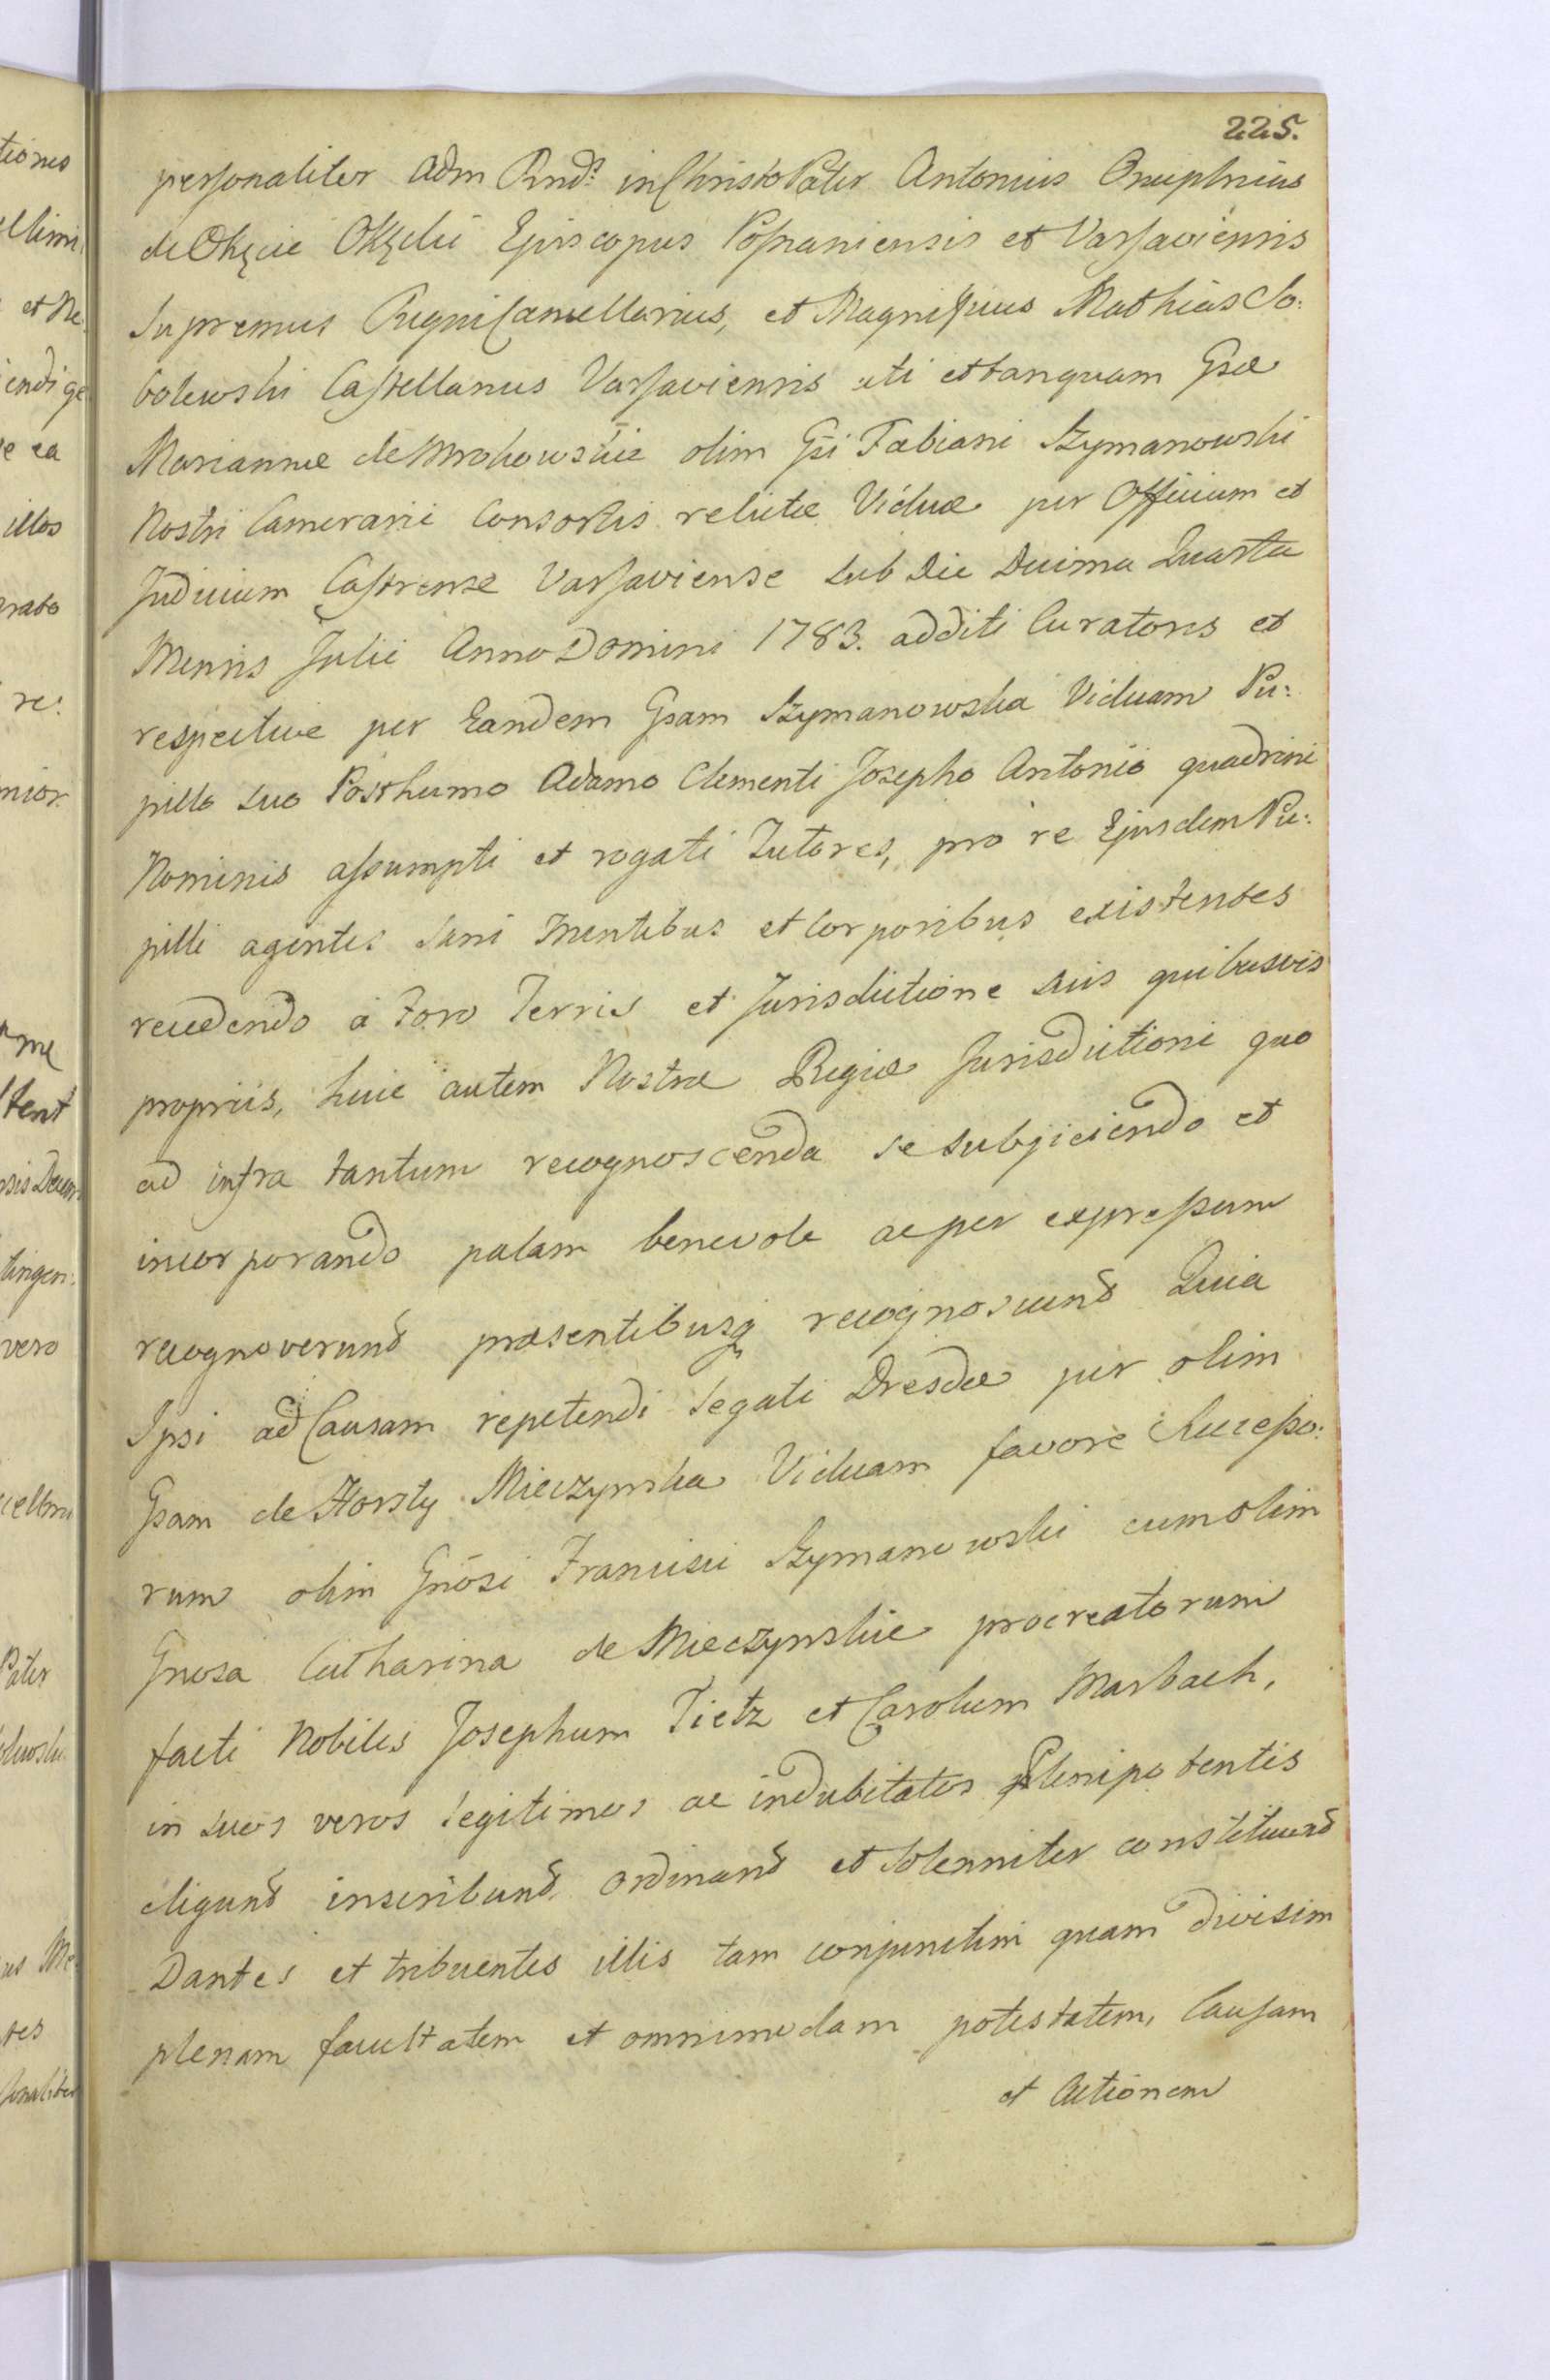 225.
personaliter Adm Rnds in Christo Pater Antonius Onuphrius
de Okęcie Okęcki Episcopus Posnaniensis et Varsaviensis
Supremus Regni Cancellarius, et Magnificus Mathias So:
bolewski Castellanus Varsaviensis uti et tanquam Gsæ
Mariannæ de Mrokowskie olim Gsi Fabiani Szymanowski
Nostri Camerarii Consortis relictæ Viduæ per Officium et
Judicium Castrense Varsaviense sub Die Decima Quarta
Mensis Julii Anno Domini 1783. additi Curatoris et
respective per Eandem Gsam Szymanowska Viduam Pu:
pillo suo Posthumo Adamo Clementi Josepho Antonio quadrini
Nominis assumpti et rogati Tutores, pro re Ejusdem Pu:
pilli agentes Sani Mentibus et Corporibus existentes
recedendo à Foro Terris et Jurisdictione suis quibusvis
propriis, huic autem Nostræ Regiæ Jurisdictioni quo
ad infra tantum recognoscenda se subjiciendo et
incorporando palam benevole ac per expressum
recognoverunt præsentibusq recognoscunt Quia
Ipsi ad Causam repetendi Legati Dresdæ per olim
Gsam de Horsty Mieczynska Viduam favore Successo:
rum olim Gnosi Francisci Szymanowski cum olim
Gnosa Catharina de Mieczynskie procreatorum
facti Nobiles Josephum Tietz et Carolum Marbach,
in suos veros legitimos ac indubitatos Plenipotentes
eligunt inscribunt ordinant et Solenniter constituunt
Dantes et tribuentes illis tam conjunctim quam divisim
plenam facultatem et omnimodam potestatem, Causam
et Actionem